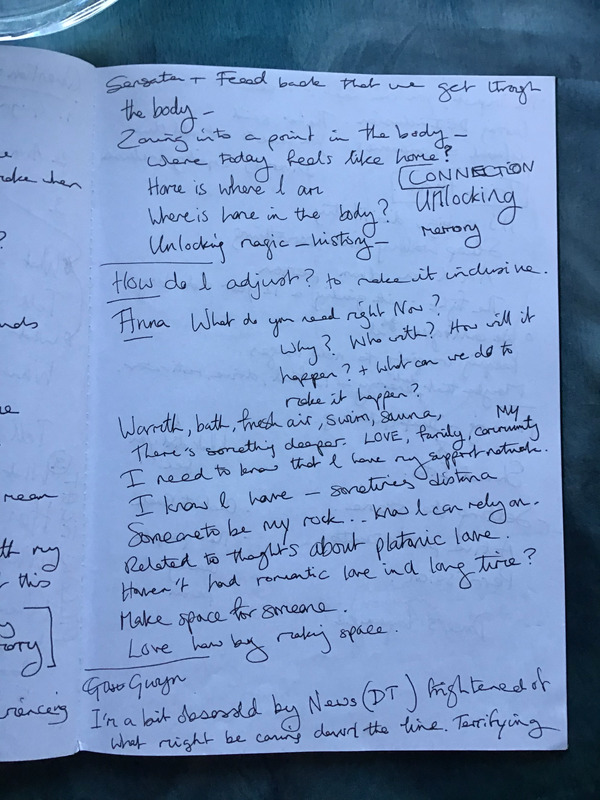 e
oke then
?
nds
e
mean
th my
t this
y
ory
riencing
Sensation + Feed back that we get through
the body –
Zoning into a point in the body –
Where today feels like home?
Home is where I am
CONNECTION
Where is home in the body?
Unlocking
Unlocking magic – history –
memory
How do I adjust? to make it inclusive.
Anna What do you need right Now?
Why? Who with? How will it
happen? + what can we do to
make it happen?
Warmth, bath, fresh air, swim, sauna,
There's something deeper. LOVE, family, My community
I need to know that I have my support network.
I know I have – sometimes distance
Someone to be my rock.. know I can rely on.
Related to thoghts about platonic love.
Haven't had romantic love in a long time?
Make space for someone.
Love how by making space.
Gwyn
I'm a bit obsessed by News (DT) frightened of
what might be coming down the line. Terrifying